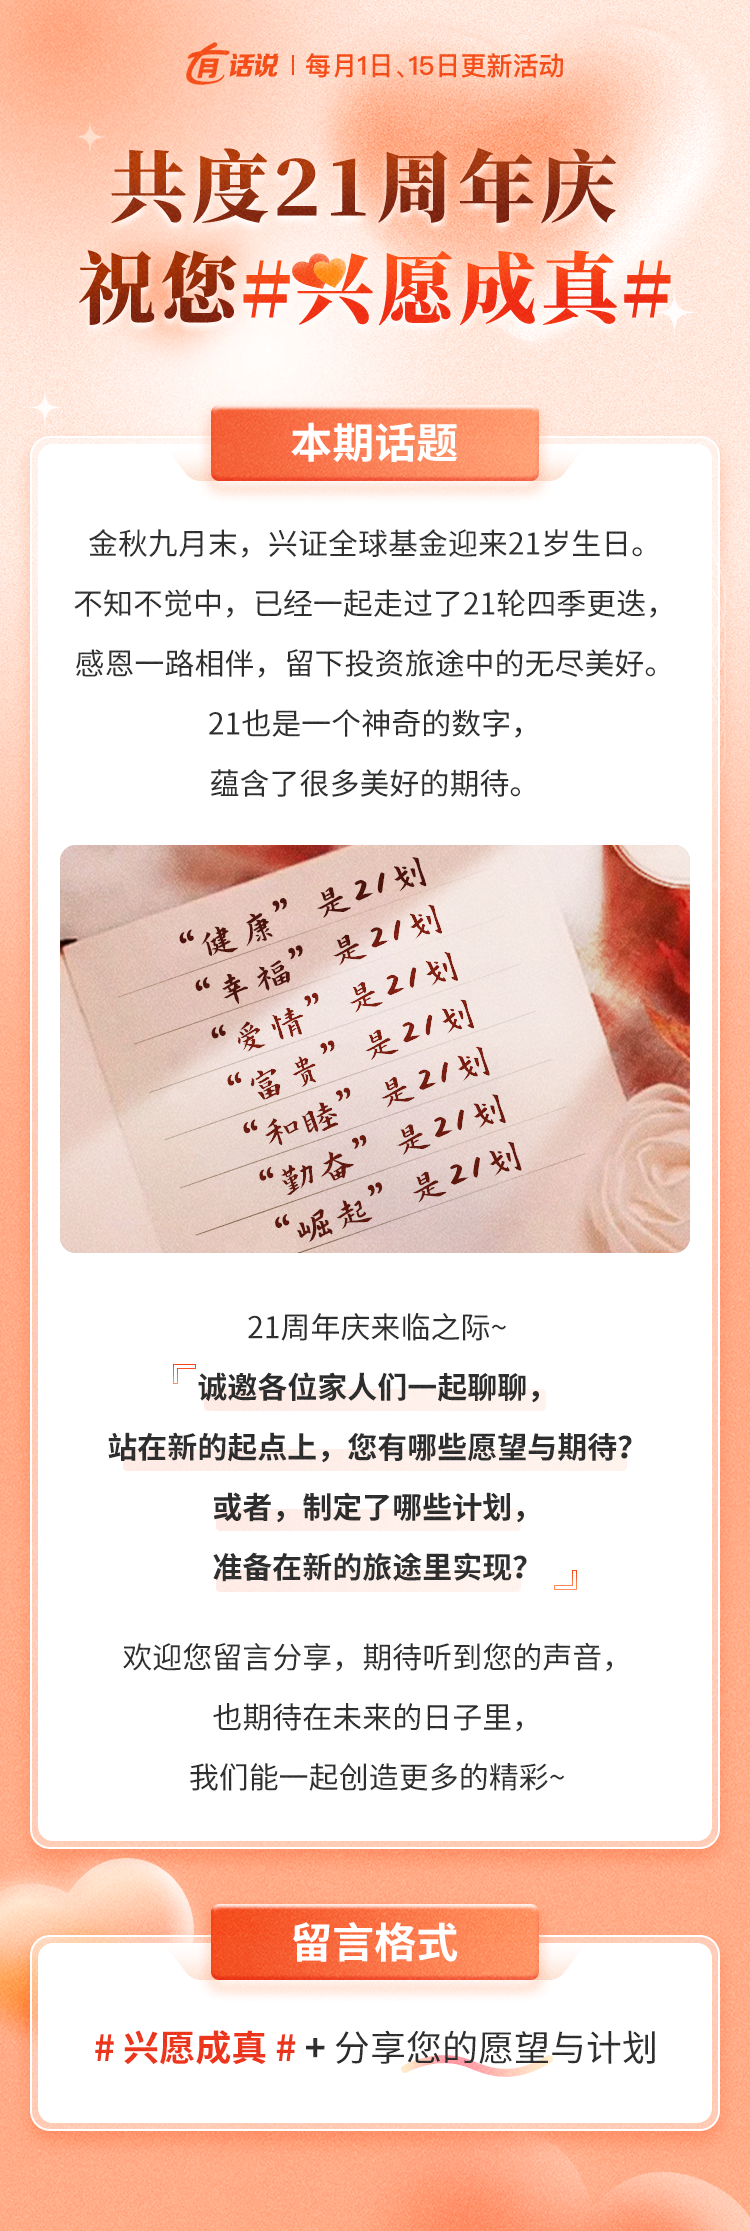 有话说 | 每月1日、15日更新活动
共度21周年庆
祝您#兴愿成真#
本期话题
金秋九月末，兴证全球基金迎来21岁生日。
不知不觉中，已经一起走过了21轮四季更迭，
感恩一路相伴，留下投资旅途中的无尽美好。
21也是一个神奇的数字，
蕴含了很多美好的期待。
“健康” 是21划
“幸福” 是21划
“爱情” 是21划
“富贵” 是21划
“和睦” 是21划
“勤奋” 是21划
“崛起” 是21划
21周年庆来临之际~
『诚邀各位家人们一起聊聊，
站在新的起点上，您有哪些愿望与期待？
或者，制定了哪些计划，
准备在新的旅途里实现？』
欢迎您留言分享，期待听到您的声音，
也期待在未来的日子里，
我们能一起创造更多的精彩~
留言格式
# 兴愿成真 # + 分享您的愿望与计划